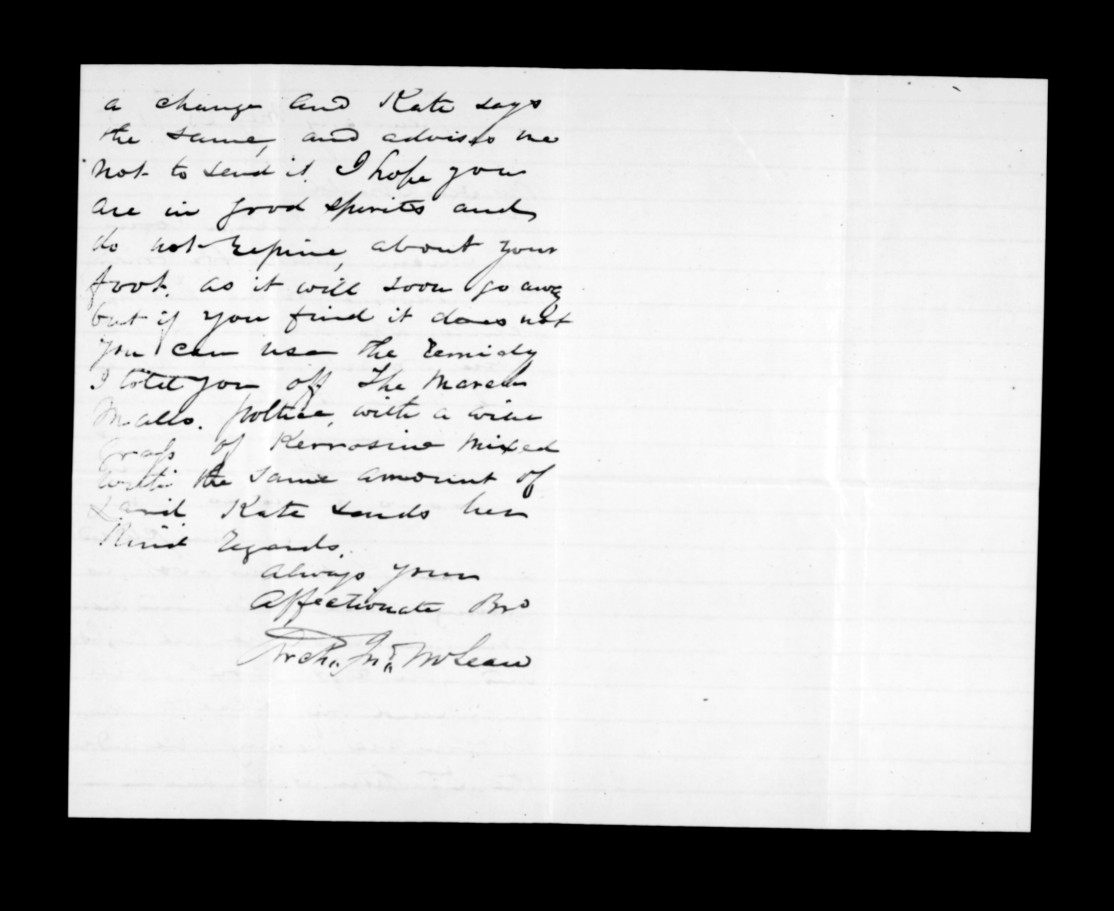 a change and Kate says
the same, and advises me
not to send it. I hope you
are in good spirits and
do not repine, about your
foot. as it will soon go away
but if you find it does not
you can use the remidy
I told you off The Marsh
Mallo. poltice, with a wine
Grass of Kerrosine mixed
with the same amount of
Lard Kate sends her
Kind regards.
Always your
Affectionate Bro
Archd. Jno. McLean